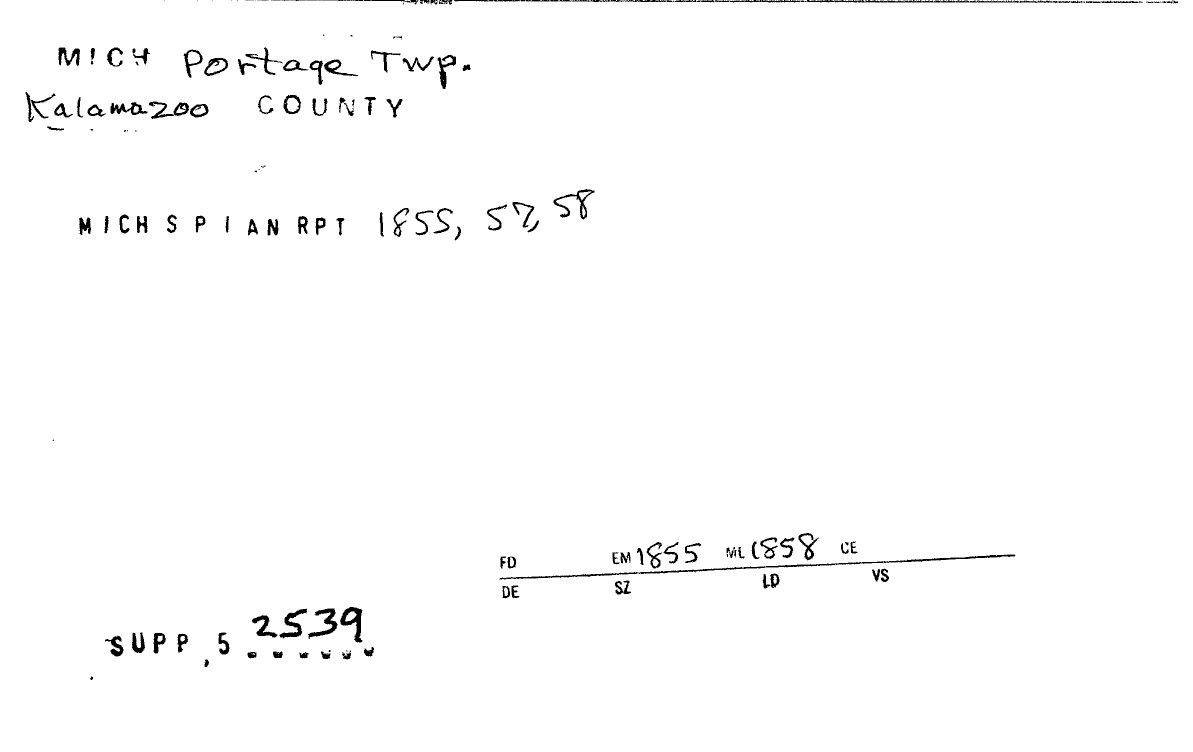 MICH Portage Twp.
Kalamazoo COUNTY
MICH SPIAN RPT 1855, 57, 58
FD EM 1855 ML 1858 CE
DE SZ LD VS
SUPP, 5 2539